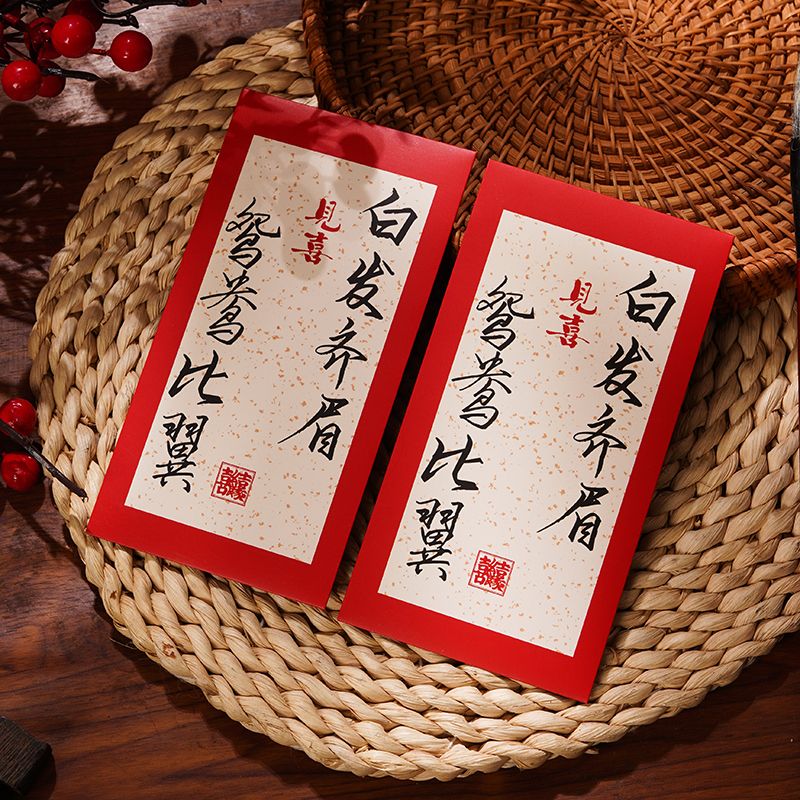 白发齐眉
见喜
鸳鸯比翼
白发齐眉
见喜
鸳鸯比翼